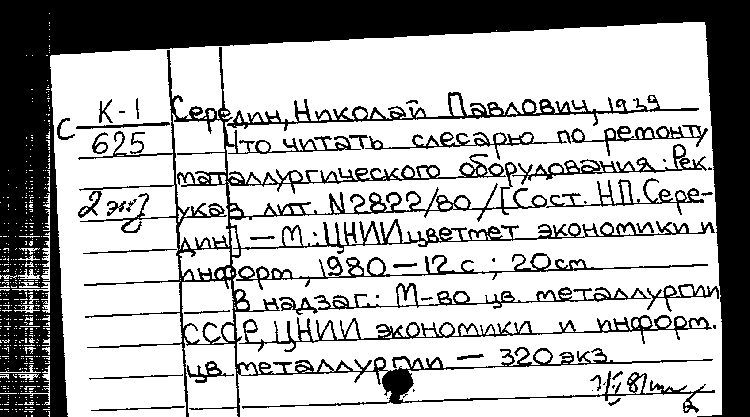 К-1 Середин, Николай Павлович, 1939
С 625 Что читать слесарю по ремонту
металлургического оборудования: Рек.
2 экз указ. лит. N2822/80 / [Сост. Н.П. Сере-
дин]. — М.: ЦНИИцветмет экономики и
информ., 1980 — 12 с.; 20 см.
В надзаг.: М-во цв. металлургии
СССР, ЦНИИ экономики и информ.
цв. металлургии — 320 экз.